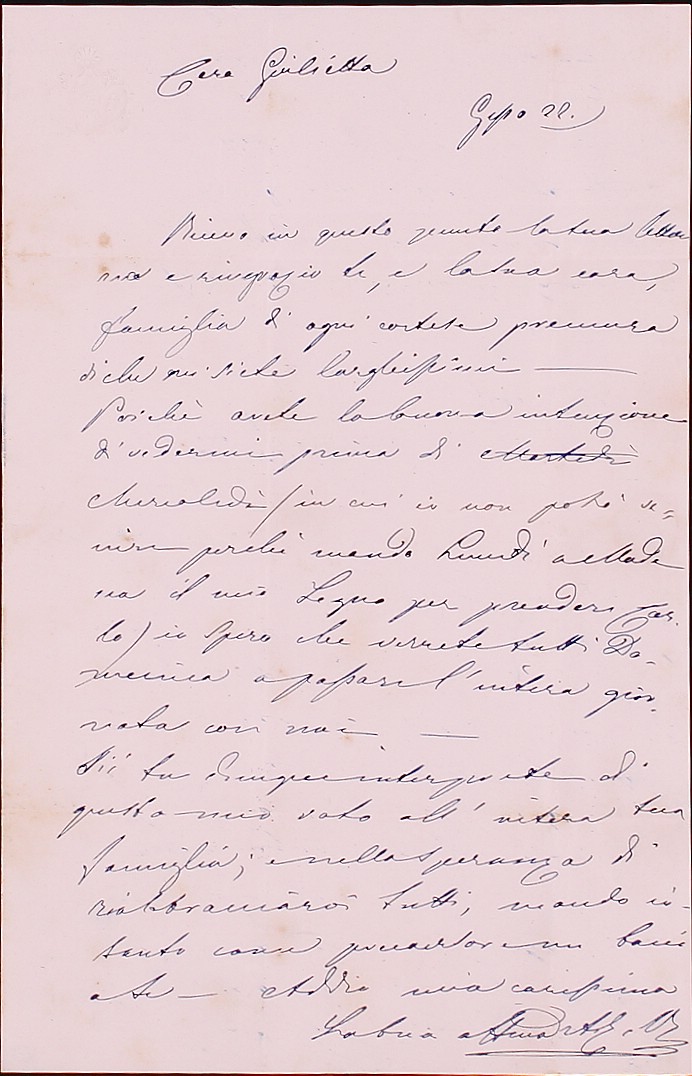 Cara Giulietta
Gesso 22.
Ricevo in questo punto la tua letteri
na e ringrazio te, e la tua cara,
famiglia di ogni cortese premura
di che mi siete larghissimi —
Poichè avete la buona intenzione
di vedermi prima di Martedì
Mercoledì (in cui io non potrò ve=
nire perchè mando Lunedì a Mode
na il mio Legno per prendere Car.
lo) io spero che verrete tutti Do-
menica a passare l'intera gior.
nata con noi —
Sii tu dunque interprete di
questo mio voto all'intera tua
famiglia; e nella speranza di
riabbracciarvi tutti, mando in-
tanto come precursore un bacio
a te — Addio mia carissima
La tua affma